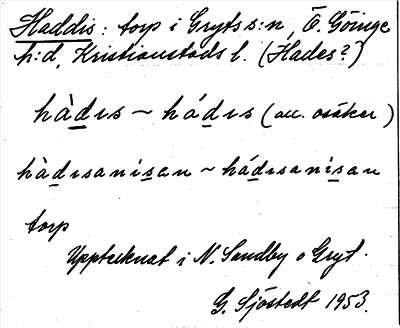 Haddis: torp i Gryts s:n, Ö. Göinge
h:d, Kristianstads l. (Hades?)
hàdıs ~ hádıs (acc. osäker)
hàdısanisan ~ hádısanisan
torp
Upptecknat i N. Sandby o Gryt.
G. Sjöstedt 1953.